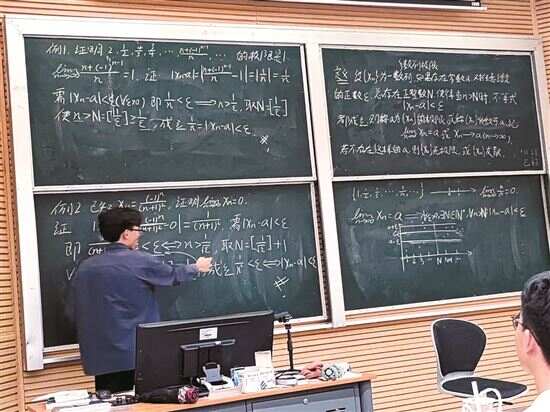 例1. 证明 2, 1/2, 4/3, 3/4, … (n+(-1)^{n-1})/n, … 的极限是1.
lim_{n→∞} (n+(-1)^{n-1})/n = 1. 证 |xₙ-a|=|(n+(-1)^{n-1})/n -1|=|1/n|=1/n
需|xₙ-a|<ε(∀ε>0) 即 1/n<ε ⟺ n>1/ε, 取N=[1/ε]
使 n>N=[1/ε] 1/ε, 成立 1/n=|xₙ-a|<ε.
例2. 已知 xₙ=(-1)ⁿ/(n+1)², 证明 lim xₙ=0.
证 -0|=1/(n+1)², 需|xₙ-a|<ε
即 <ε ⟺ n>, 取N=[]+1
成立 <ε ⟺ |xₙ-a|<ε
数列极限
定义: 设{xₙ}为一数列, 如果存在常数a, 对任意给定
的正数ε, 总存在正整数N, 使得当n>N时, 不等式
|xₙ-a|<ε
都成立, 则称a为{xₙ}的极限, 或称{xₙ}收敛于a, 记
lim_{n→∞} xₙ=a 或 xₙ→a (n→∞),
若不存在这样的a, 则{xₙ}无极限, 或{xₙ}发散.
{1, 1/2, … 1/n, …} lim_{n→∞} 1/n=0.
lim_{n→∞} xₙ=a ⟺ ∀ε>0, ∃N∈N⁺, ∀n>N, |xₙ-a|<ε
a+ε
a
a-ε
1 2 3 N